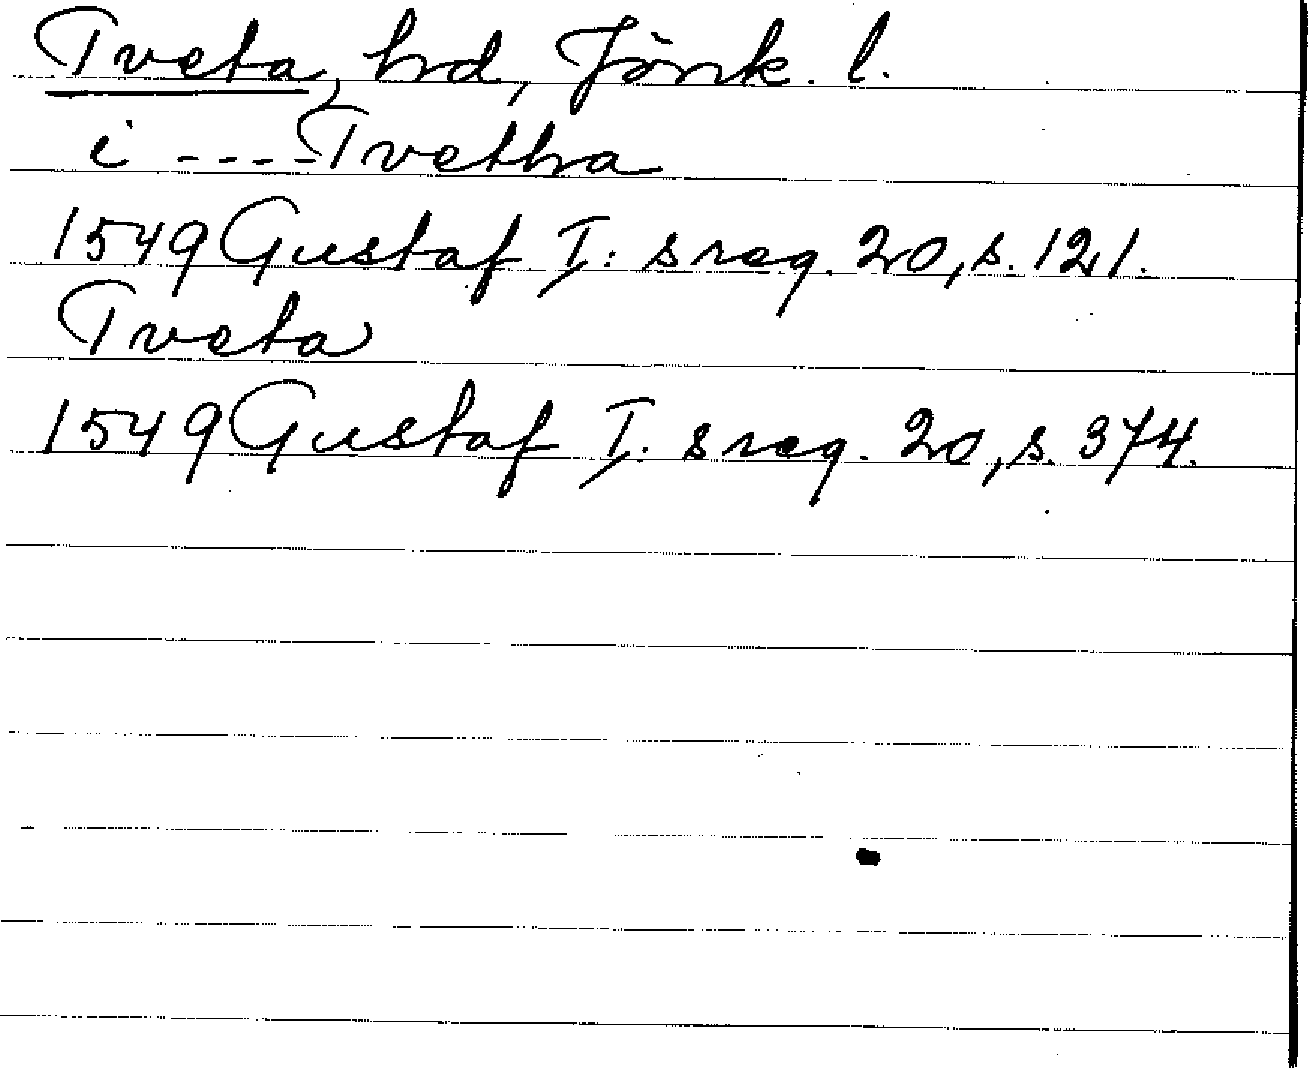 Tveta, hrd, Jönk. l.
i ---- Tvetha
1549 Gustaf I: s reg. 20, s. 121.
Tveta
1549 Gustaf I: s reg. 20, s. 374.